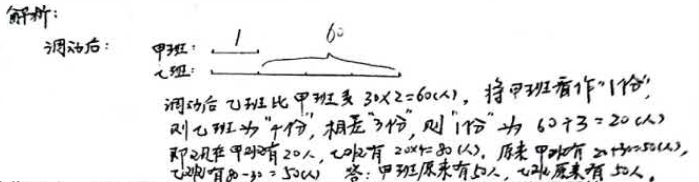 解析:
调动后: 甲班: 1 60
乙班:
调动后乙班比甲班多30×2=60(人), 将甲班看作"1份",
则乙班为"4份", 相差"3份", 则"1份"为 60÷3=20(人)
即现在甲班有20人, 乙班有 20×4=80(人). 原来甲班有 20+30=50(人),
乙班有80-30=50(人) 答: 甲班原来有50人, 乙班原来有50人.